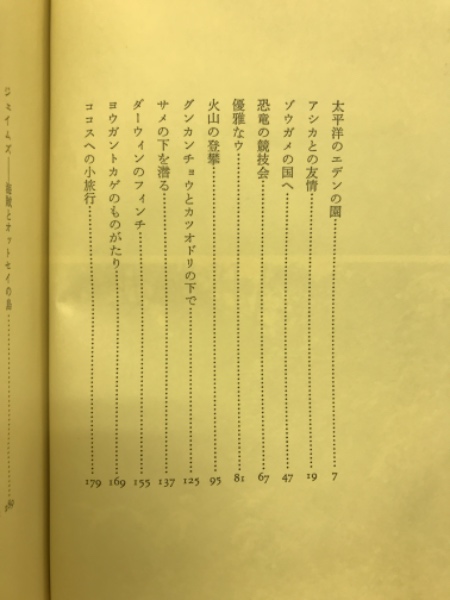 太平洋のエデンの園 7
アシカとの友情 19
ゾウガメの国へ 47
恐竜の競技会 67
優雅なウ 81
火山の登攀 95
グンカンチョウとカツオドリの下で 125
サメの下を潜る 137
ダーウィンのフィンチ 155
ヨウガントカゲのものがたり 169
ココスへの小旅行 179
ジェイムズ——海賊とオットセイの島